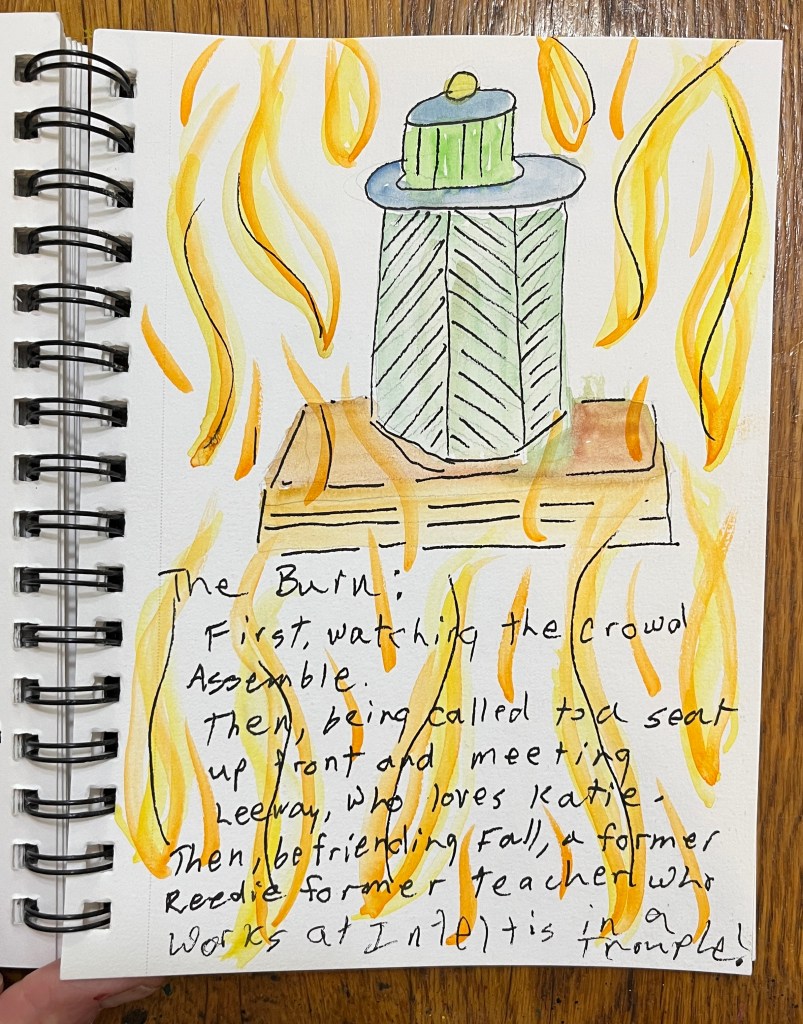 The Burn:
First, watching the crowd
Assemble.
Then, being called to a seat
up front and meeting
Leeway, who loves Katie.
Then, befriending Fall, a former
Reedie former teacher who
works at Intel + is in a
Trouple!